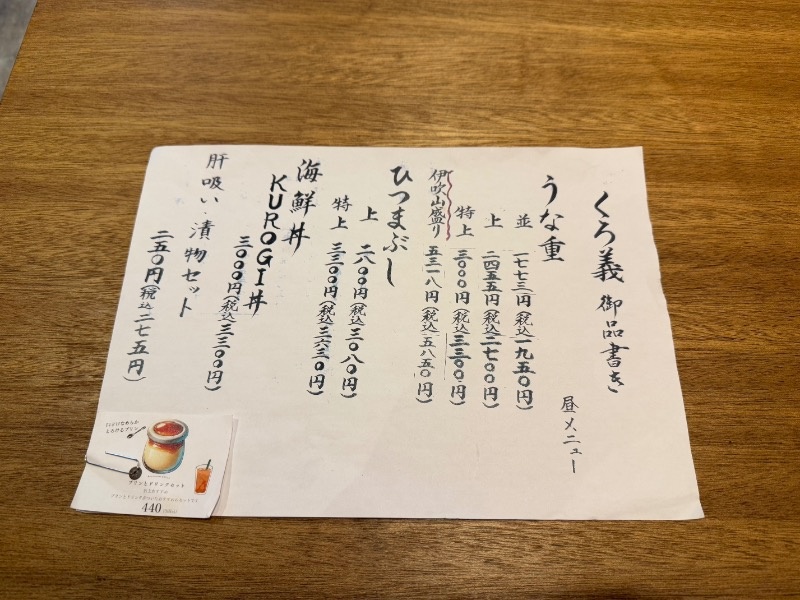 くろ義 御品書き
昼メニュー
うな重
並 一七七三円(税込一九五〇円)
上 二四五五円(税込二七〇〇円)
特上 三〇〇〇円(税込三三〇〇円)
伊吹山盛り 五三一八円(税込五八五〇円)
ひつまぶし
上 二八〇〇円(税込三〇八〇円)
特上 三三〇〇円(税込三六三〇円)
海鮮丼
KUROGI丼
三〇〇〇円(税込三三〇〇円)
肝吸い・漬物セット
二五〇円(税込二七五円)
とろけるプリン
プリンとドリンクセット
440